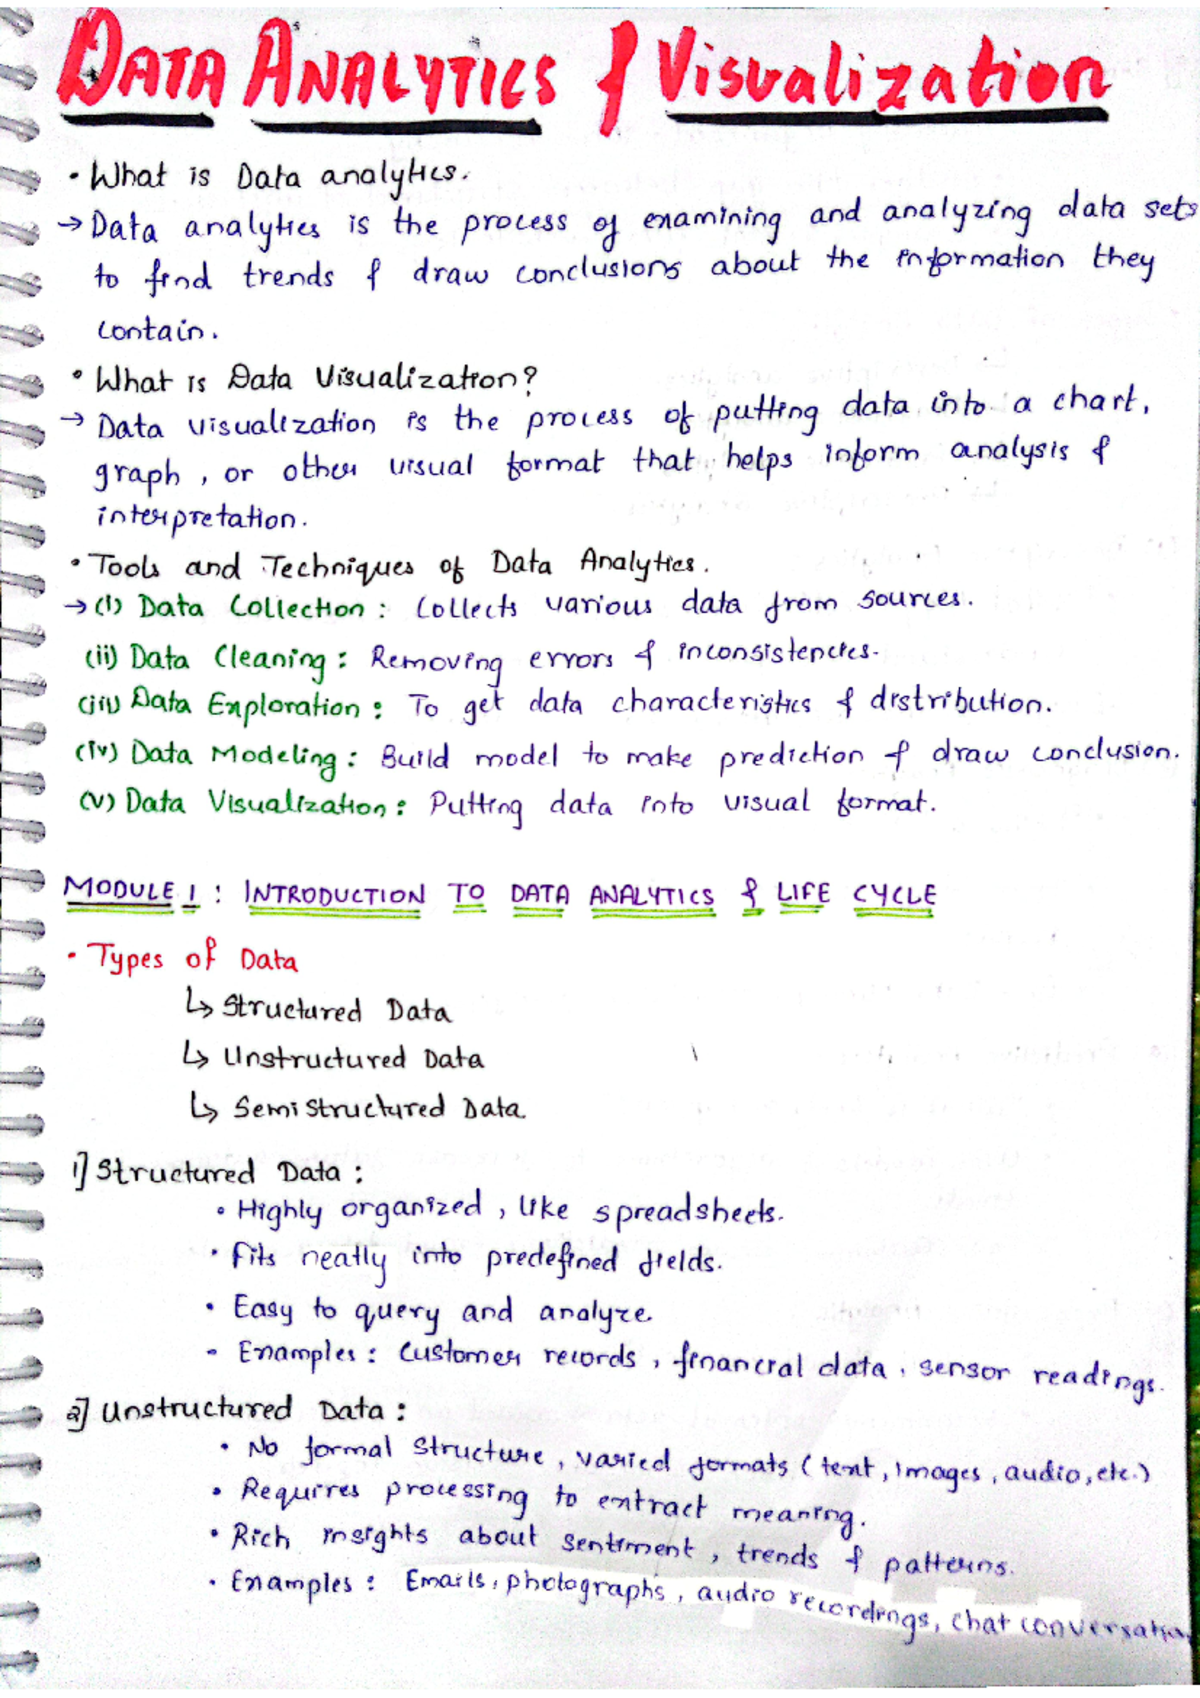 DATA ANALYTICS & Visualization
• What is Data analytics.
→ Data analytics is the process of examining and analyzing data sets
to find trends & draw conclusions about the information they
contain.
• What is Data Visualization?
→ Data visualization is the process of putting data into a chart,
graph, or other visual format that helps inform analysis &
interpretation.
• Tools and Techniques of Data Analytics.
→ (i) Data Collection : Collects various data from sources.
(ii) Data Cleaning : Removing errors & inconsistencies.
(iii) Data Exploration : To get data characteristics & distribution.
(iv) Data Modeling : Build model to make prediction & draw conclusion.
(v) Data Visualization : Putting data into visual format.
MODULE 1 : INTRODUCTION TO DATA ANALYTICS & LIFE CYCLE
• Types of Data
↳ Structured Data
↳ Unstructured Data
↳ Semi Structured Data
1] Structured Data :
• Highly organized, like spreadsheets.
• Fits neatly into predefined fields.
• Easy to query and analyze.
• Examples : Customer records, financial data, sensor readings.
2] Unstructured Data :
• No formal structure, varied formats (text, images, audio, etc.)
• Requires processing to extract meaning.
• Rich insights about sentiment, trends & patterns.
• Examples : Emails, photographs, audio recordings, chat conversation.